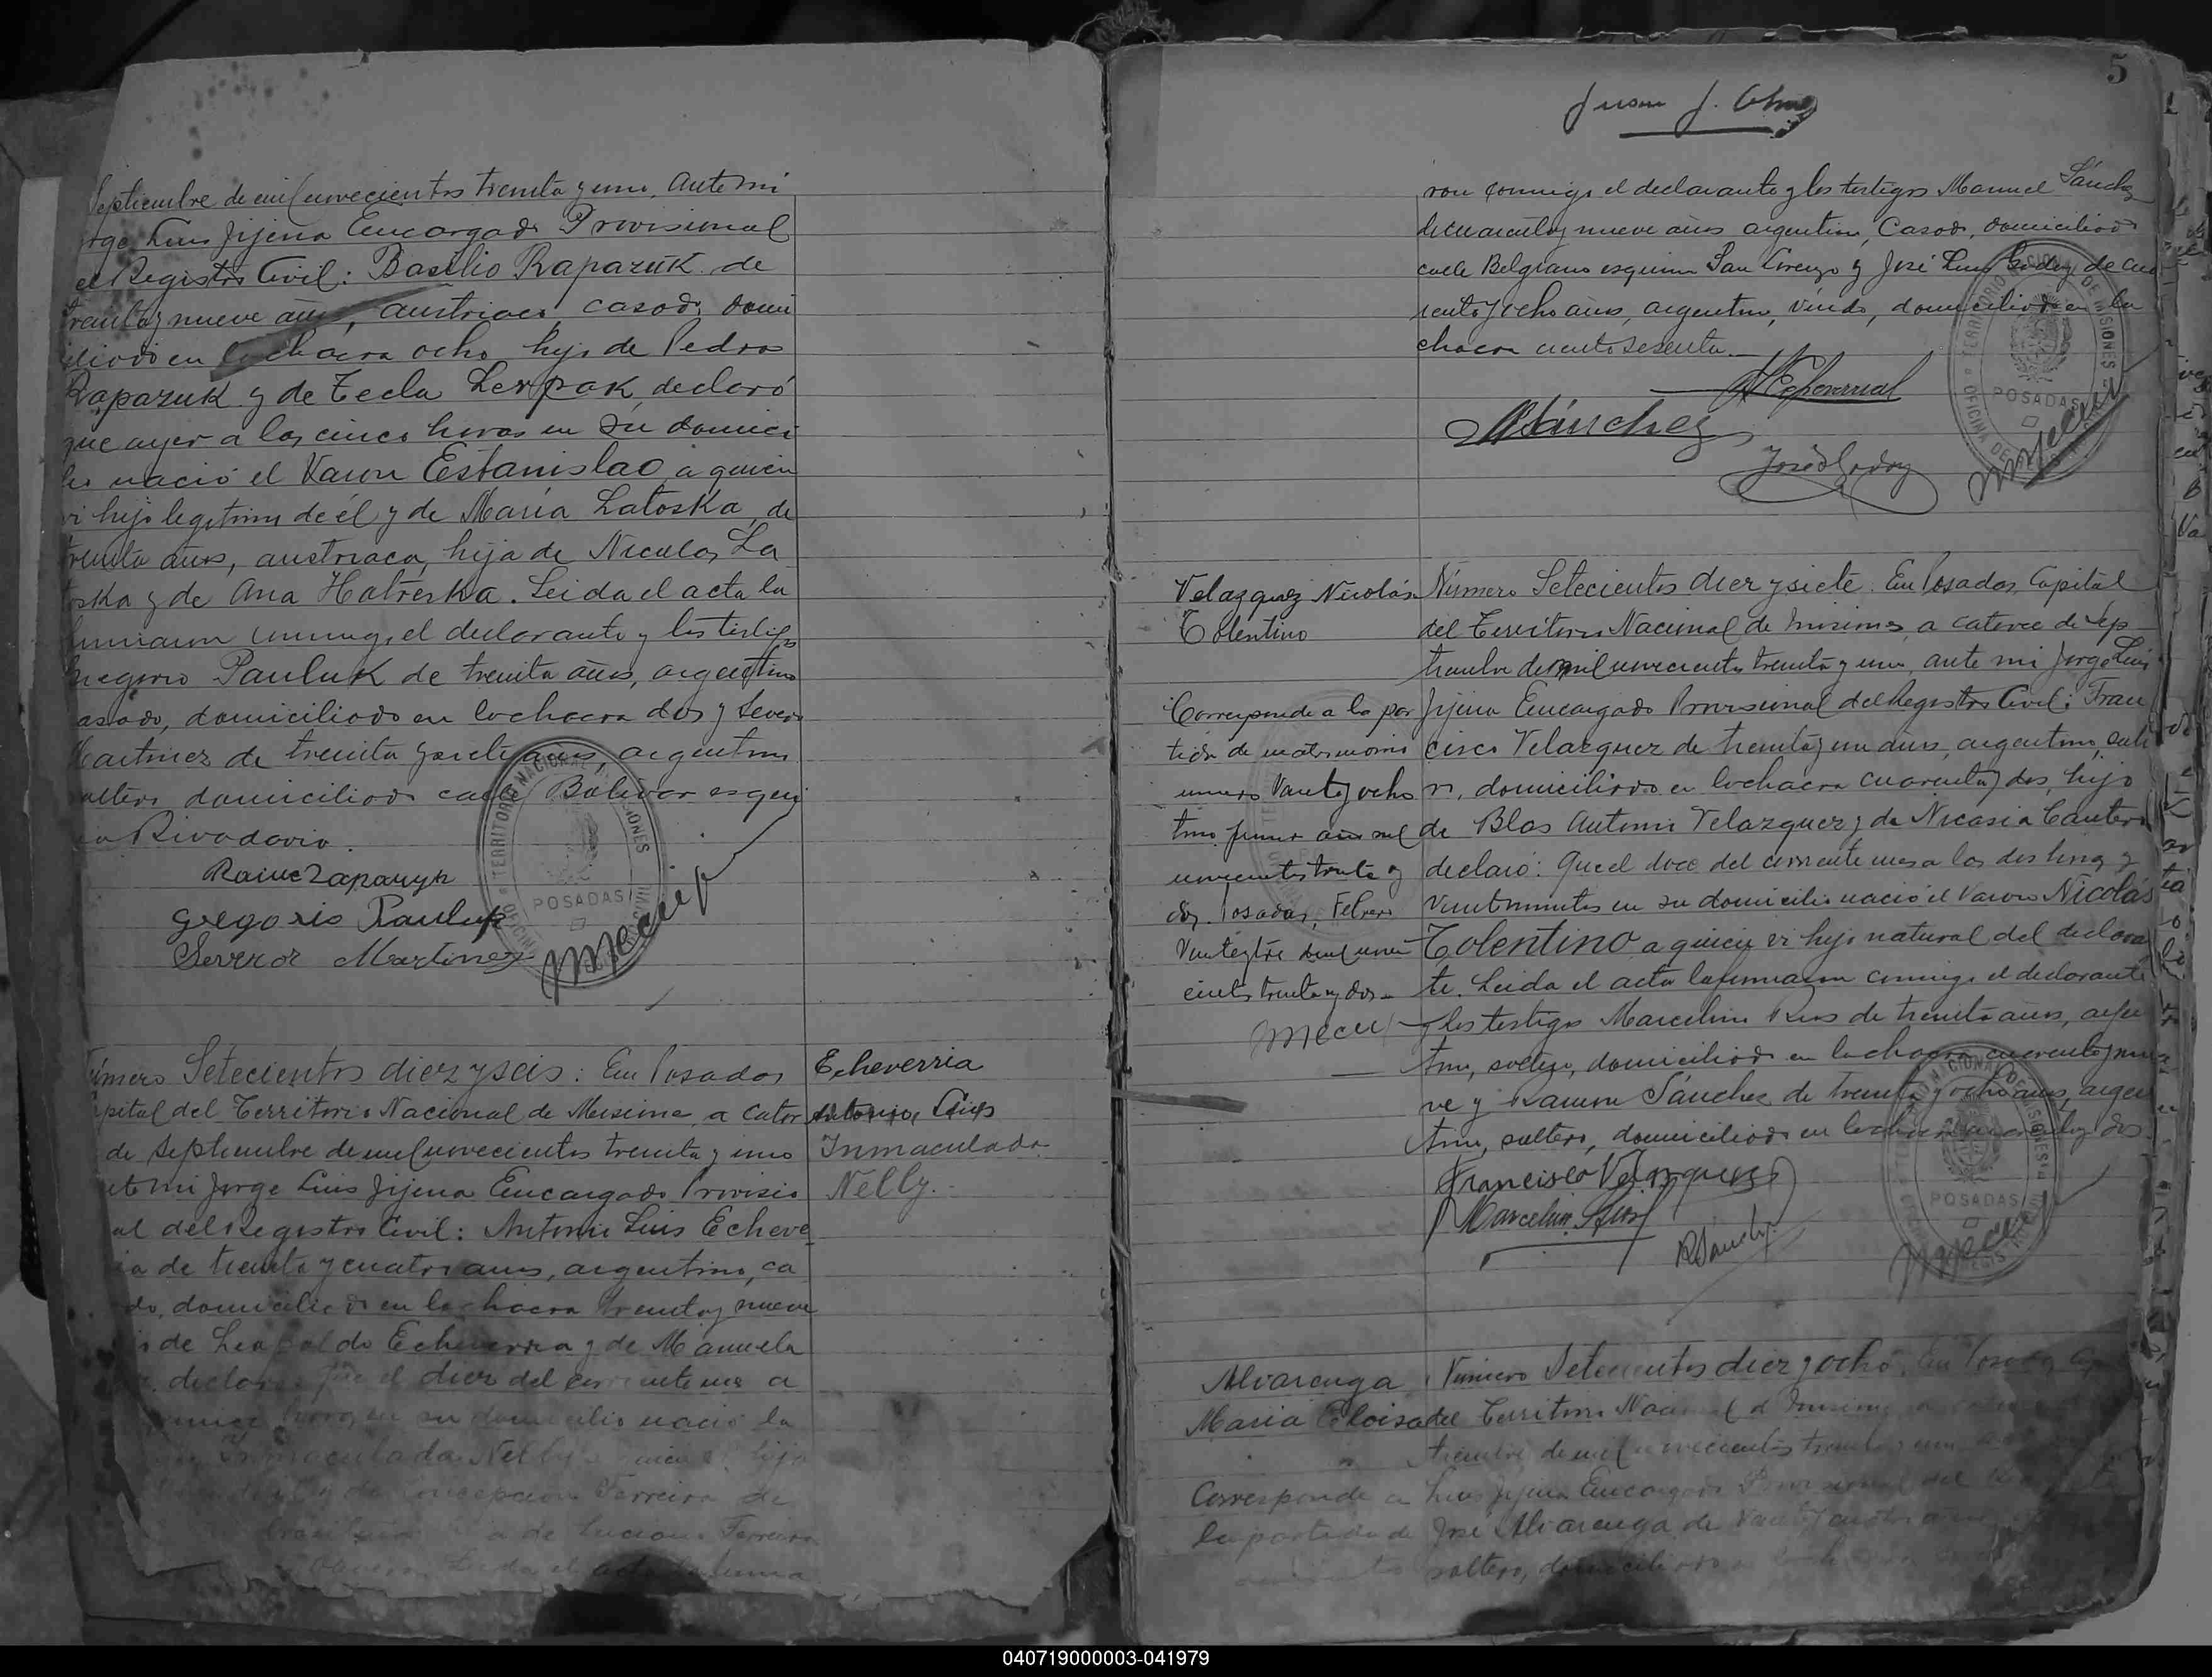 Septiembre de mil novecientos treinta y uno. Ante mi
Luis Jijena Encargado Provisional
el Registro Civil: Basilio Rapazuk de
treinta y nueve años, austriaco, casado, domi
ciliado en la chacra ocho hijo de Pedro
Rapazuk y de Tecla Lerpak, declaró
que ayer a las cinco horas en su domici
lio nació el varon Estanislao, a quien
hijo legitimo de él y de Maria Latoska, de
treinta años, austriaca, hija de Nicolas La
toska y de Ana Hatreska. Leida el acta la
firmaron conmigo el declarante y los testigos
Gregorio Pauluk de treinta años, argentino
casado, domiciliado en la chacra dos y Severo
Martinez de treinta y siete años, argentino
soltero domiciliado calle Bolivar esqui
na Rivadavia.
Gregorio Pauluk
Martinez
TERRITORIO NACIONAL DE MISIONES
POSADAS
Número Setecientos diez y seis: En Posadas
Capital del Territorio Nacional de Misiones, a cator
de Septiembre de mil novecientos treinta y uno
ante mi Jorge Luis Jijena Encargado Provisio
al del Registro Civil: Antonio Luis Echeve
ia de treinta y cuatro años, argentino, ca
do, domiciliado en la chacra treinta y nueve
de Leopoldo Echeverria y de Manuela
declaró: Que el diez del corriente mes a
horas en su domicilio nació la
Inmaculada Nelly a quien hija
de Concepcion Ferreira de
de Luciano Ferreira
Leida el acta la firma
Echeverria
Antonia Luis
Inmaculada
Nelly.
5
Juan J.
ron conmigo el declarante y los testigos Manuel Sánchez
de cuarenta y nueve años argentino, casado, domiciliado
calle Belgrano esquina San Lorenzo y José Luis Godoy de cua
renta y ocho años, argentino, viudo, domiciliado en la
chacra ciento sesenta.
MSánchez
José L Godoy
TERRITORIO NACIONAL DE MISIONES
POSADAS
Velazquez Nicolás
Tolentino
Corresponde a la par
tida de matrimonio
numero Veinte y ocho
tomo primero año mil
novecientos treinta y
dos. Posadas, Febrero
Veinte y tres de mil nove
cientos treinta y dos.-
Número Setecientos diez y siete. En Posadas, Capital
del Territorio Nacional de Misiones, a catorce de Sep
tiembre de mil novecientos treinta y uno, ante mi Jorge Luis
Jijena Encargado Provisional del Registro Civil: Fran
cisco Velazquez de treinta y un años, argentino, solte
ro, domiciliado en la chacra cuarenta y dos, hijo
de Blas Antonio Velazquez y de Nicasia Cantero
declaró: Que el doce del corriente mes a las dos horas y
veinte minutos en su domicilio nació el varon Nicolás
Tolentino a quien es hijo natural del declaran
te. Leida el acta la firmaron conmigo el declarante
y los testigos Marcelino Rios de treinta años, argen
tino, soltero, domiciliado en la chacra cuarenta y nue
ve y Ramon Sánchez de treinta y ocho años, argen
tino, soltero, domiciliado en la chacra cuarenta y dos
Francisco Velazquez
Marcelino Rios
RSánchez
POSADAS
Alvarenga
Maria Eloisa
Corresponde a
la partida de
Número Setecientos diez y ocho. En Posadas Cap
del Territorio Nacional de Misiones
tiembre de mil novecientos treinta y uno
Luis Jijena Encargado Provisional del
José Alvarenga de veinte y cuatro
soltero, domiciliado
040719000003-041979